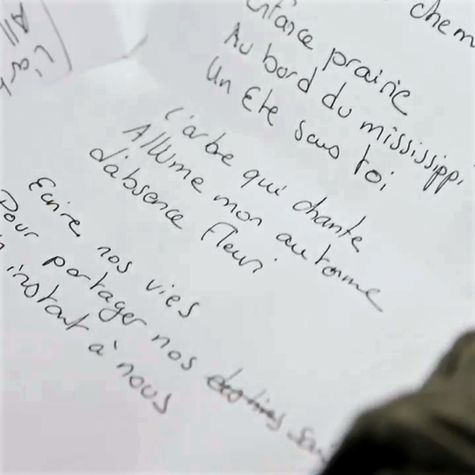 chem
enfance prairie
Au bord du mississippi
Un Ete sans toi
L'arbe qui chante
Allume mon automne
d'absence fleuri
Ecrire nos vies
Pour partager nos
instant à nous
L'arb
All